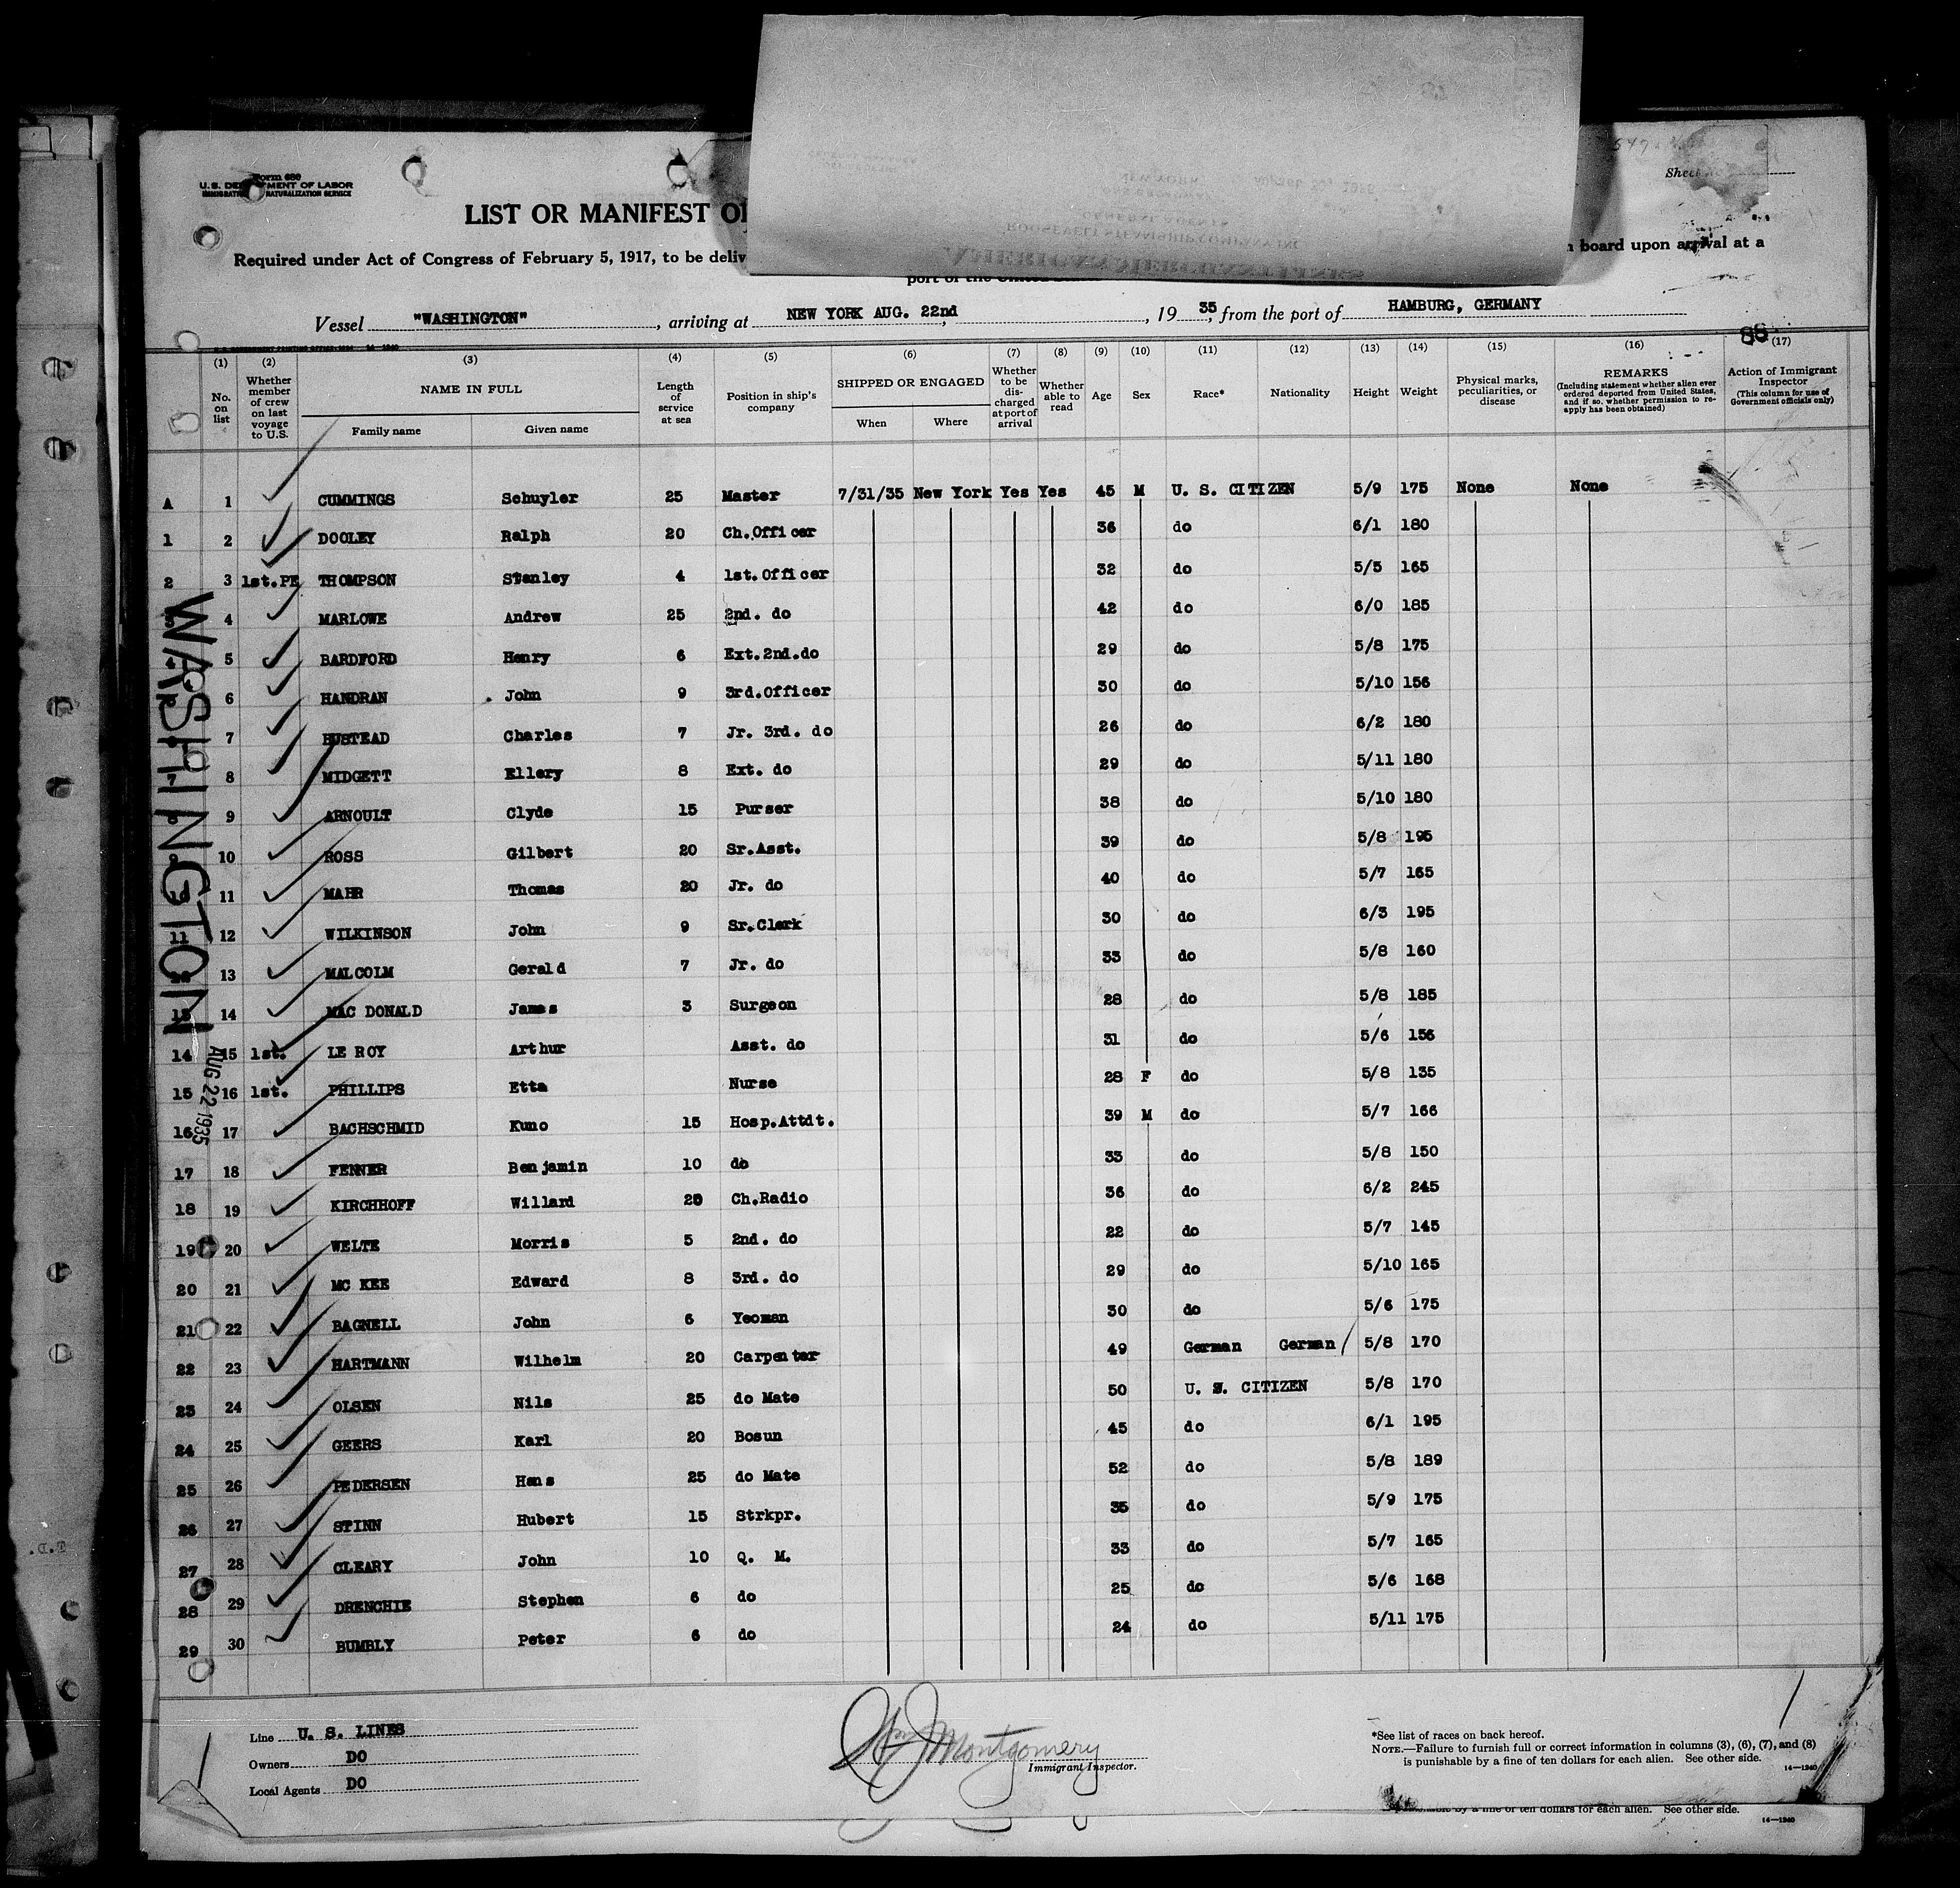 Form 680
U. S. DEPARTMENT OF LABOR
IMMIGRATION NATURALIZATION SERVICE
Sheet
LIST OR MANIFEST OF
Required under Act of Congress of February 5, 1917, to be deliv
n board upon arrival at a
port of the United
NEW YORK
GENERAL AGENTS
ROOSEVELT STEAMSHIP COMPANY, INC
Vessel "WASHINGTON", arriving at NEW YORK AUG. 22nd, 19 35, from the port of HAMBURG, GERMANY
88
(1) (2) (3) (4) (5) (6) (7) (8) (9) (10) (11) (12) (13) (14) (15) (16) (17)
No. on list
Whether member of crew on last voyage to U.S.
NAME IN FULL
Family name Given name
Length of service at sea
Position in ship's company
SHIPPED OR ENGAGED
When Where
Whether to be discharged at port of arrival
Whether able to read
Age Sex Race* Nationality Height Weight
Physical marks, peculiarities, or disease
REMARKS
(Including statement whether alien ever ordered deported from United States, and if so, whether permission to re-apply has been obtained)
Action of Immigrant Inspector
(This column for use of Government officials only)
A 1 CUMMINGS Schuyler 25 Master 7/31/35 New York Yes Yes 45 M U. S. CITIZEN 5/9 175 None None
1 2 DOOLEY Ralph 20 Ch.Officer 36 do 6/1 180
2 3 1st.PE THOMPSON Stanley 4 1st.Officer 32 do 5/5 165
4 MARLOWE Andrew 25 2nd. do 42 do 6/0 185
4 5 BARDFORD Henry 6 Ext.2nd.do 29 do 5/8 175
6 HANDRAN John 9 3rd.Officer 30 do 5/10 156
7 HUSTEAD Charles 7 Jr. 3rd. do 26 do 6/2 180
7 8 MIDGETT Ellery 8 Ext. do 29 do 5/11 180
9 ARNOULT Clyde 15 Purser 38 do 5/10 180
10 ROSS Gilbert 20 Sr.Asst. 39 do 5/8 195
10 11 MAHR Thomas 20 Jr. do 40 do 5/7 165
11 12 WILKINSON John 9 Sr.Clerk 30 do 6/3 195
13 MALCOLM Gerald 7 Jr. do 33 do 5/8 160
13 14 MAC DONALD James 3 Surgeon 28 do 5/8 185
14 15 1st. LE ROY Arthur Asst. do 31 do 5/6 156
15 16 1st. PHILLIPS Etta Nurse 28 F do 5/8 135
16 17 BACHSCHMID Kuno 15 Hosp.Attdt. 39 M do 5/7 166
17 18 FENNER Benjamin 10 do 33 do 5/8 150
18 19 KIRCHHOFF Willard 20 Ch.Radio 36 do 6/2 245
19 20 WELTE Morris 5 2nd. do 22 do 5/7 145
20 21 MC KEE Edward 8 3rd. do 29 do 5/10 165
21 22 BAGNELL John 6 Yeoman 30 do 5/6 175
22 23 HARTMANN Wilhelm 20 Carpenter 49 German German 5/8 170
23 24 OLSEN Nils 25 do Mate 50 U. S. CITIZEN 5/8 170
24 25 GEERS Karl 20 Bosun 45 do 6/1 195
25 26 PEDERSEN Hans 25 do Mate 52 do 5/8 189
26 27 STINN Hubert 15 Strkpr. 35 do 5/9 175
27 28 CLEARY John 10 Q. M. 33 do 5/7 165
28 29 DRENCHIE Stephen 6 do 25 do 5/6 168
29 30 BUMBLY Peter 6 do 24 do 5/11 175
WASHINGTON
AUG 22 1935
Line U. S. LINES
Owners DO
Local Agents DO
Wm J Montgomery
Immigrant Inspector.
*See list of races on back hereof.
NOTE.—Failure to furnish full or correct information in columns (3), (6), (7), and (8)
is punishable by a fine of ten dollars for each alien. See other side.
14—1240
by a fine of ten dollars for each alien. See other side.
14—1240